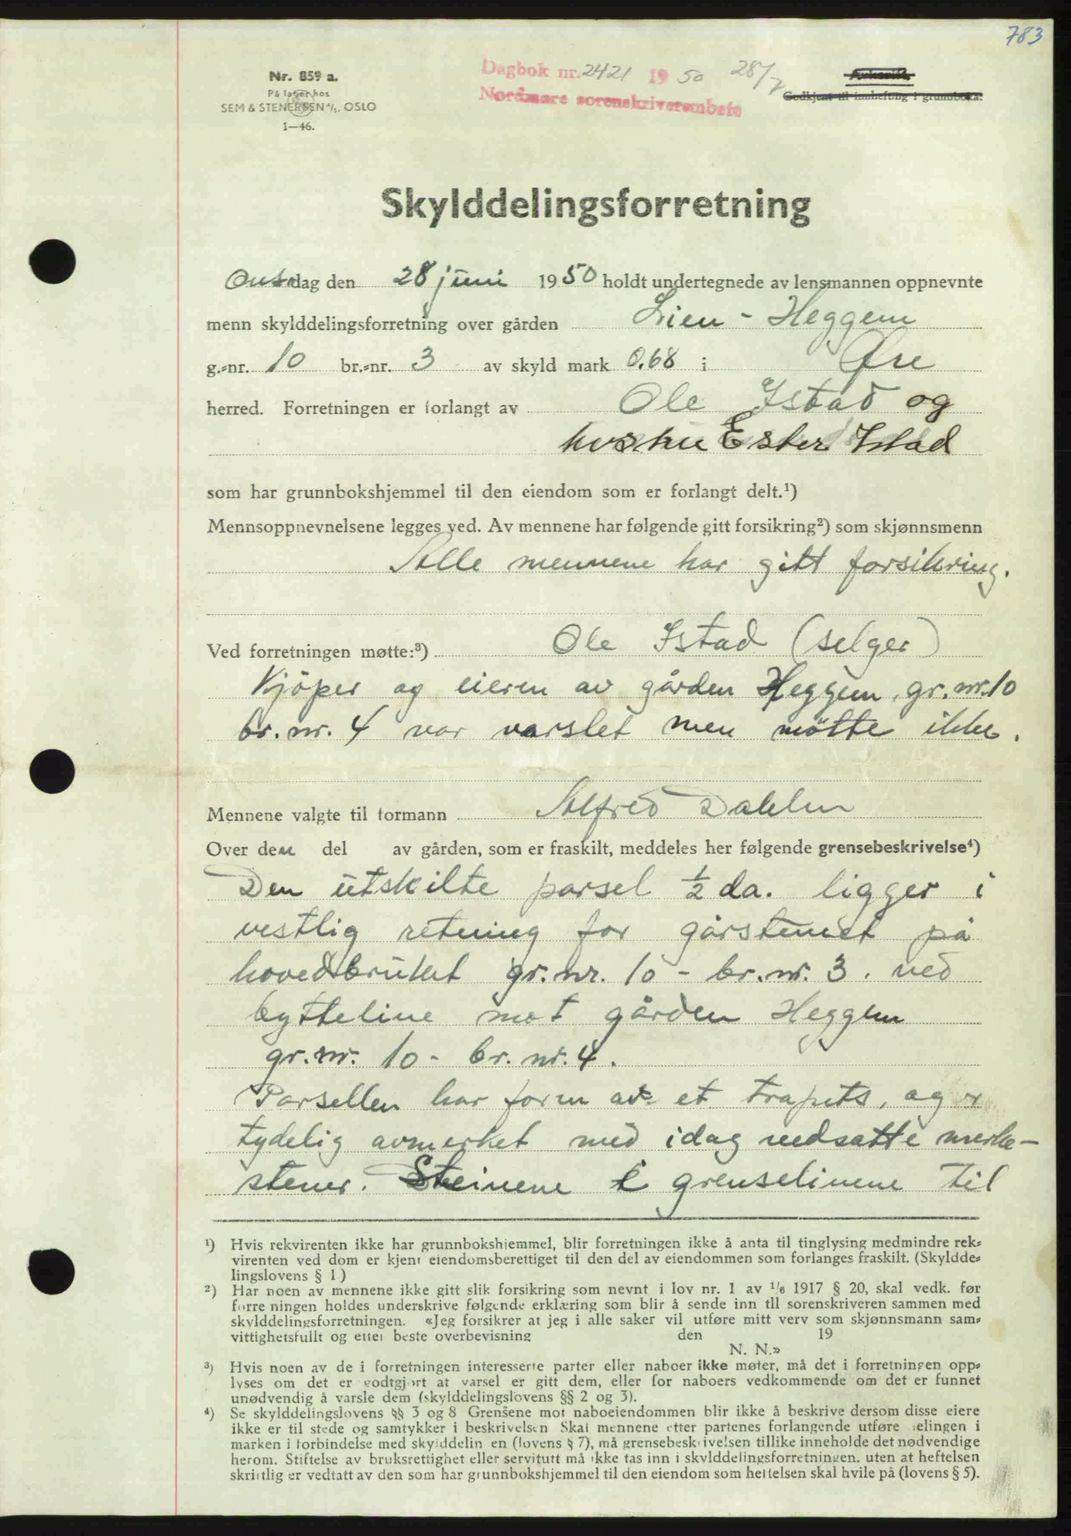 783
Nr. 859 a.
På lager hos
SEM & STENERSEN A/S. OSLO
1—46.
Dagbok nr. 2421 1950 28/7
Nordmøre sorenskriverembete
Godkjent til innheftung i grunnboka.
Skylddelingsforretning
Onsdag den 28 juni 1950 holdt undertegnede av lensmannen oppnevnte
menn skylddelingsforretning over gården Lien - Heggem
g.-nr. 10 br.-nr. 3 av skyld mark 0.68 i Øre
herred. Forretningen er forlangt av Ole Istad og
hustru Ester Istad
som har grunnbokshjemmel til den eiendom som er forlangt delt.¹)
Mennsoppnevnelsene legges ved. Av mennene har følgende gitt forsikring²) som skjønnsmenn
Alle mennene har gitt forsikring.
Ved forretningen møtte:³) Ole Istad (selger)
Kjöper og eieren av gården Heggem, gr. nr. 10
br. nr. 4 var varslet men mötte ikke.
Mennene valgte til formann Alfred Dahlen
Over den del av gården, som er fraskilt, meddeles her følgende grensebeskrivelse⁴)
Den utskilte parsel ½ da. ligger i
vestlig retning for gårstunet på
hovedbruket gr. nr. 10 - br. nr. 3. ved
bytteline mot gården Heggem
gr. nr. 10 - br. nr. 4.
Parsellen har form av et trapets, og er
tydelig avmerket med idag nedsatte merke-
stener. Steinene i grenselinene til
¹) Hvis rekvirenten ikke har grunnbokshjemmel, blir forretningen ikke å anta til tinglysing medmindre rek-
virenten ved dom er kjent eiendomsberettiget til den del av eiendommen som forlanges fraskilt. (Skyldde-
lingslovens § 1)
²) Har noen av mennene ikke gitt slik forsikring som nevnt i lov nr. 1 av 1/6 1917 § 20, skal vedk. før
forretningen holdes underskrive følgende erklæring som blir å sende inn til sorenskriveren sammen med
skylddelingsforretningen. «Jeg forsikrer at jeg i alle saker vil utføre mitt verv som skjønnsmann sam-
vittighetsfullt og etter beste overbevisning den 19
N. N.»
³) Hvis noen av de i forretningen interesserte parter eller naboer ikke møter, må det i forretningen opp-
lyses om det er godtgjort at varsel er gitt dem, eller for naboers vedkommende om det er funnet
unødvendig å varsle dem (skylddelingslovens §§ 2 og 3).
⁴) Se skylddelingslovens §§ 3 og 8 Grensene mot naboeiendommen blir ikke å beskrive dersom disse eiere
ikke er til stede og samtykker i beskrivelsen Skal mennene etter partenes forlangende utføre delingen i
marken i forbindelse med skylddelingen (lovens § 7), må grensebeskrivelsen tillike inneholde det nødvendige
herom. Stiftelse av bruksrettighet eller servitutt må ikke tas inn i skylddelingsforretningen, uten at heftelsen
skriftlig er vedtatt av den som har grunnbokshjemmel til den eiendom som heftelsen skal hvile på (lovens § 5).